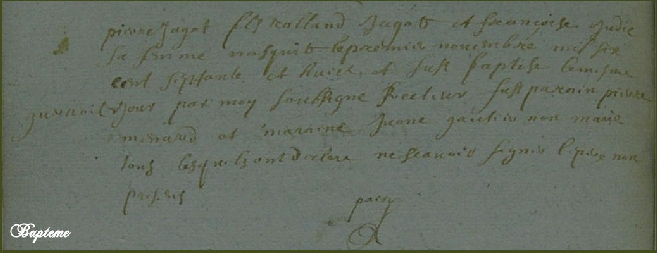 pierre Jagot fils Rolland Jagot et francoise Judic
sa femme nasquit le premier novembre mil six
cent septante et huict et fust baptise le mesme
jour par moy soussigne Recteur fust parain pierre
menard et maraine Jeane gautier non marie
tous lesquels ont declare ne scavoir signer le pere non
presens
Bapteme